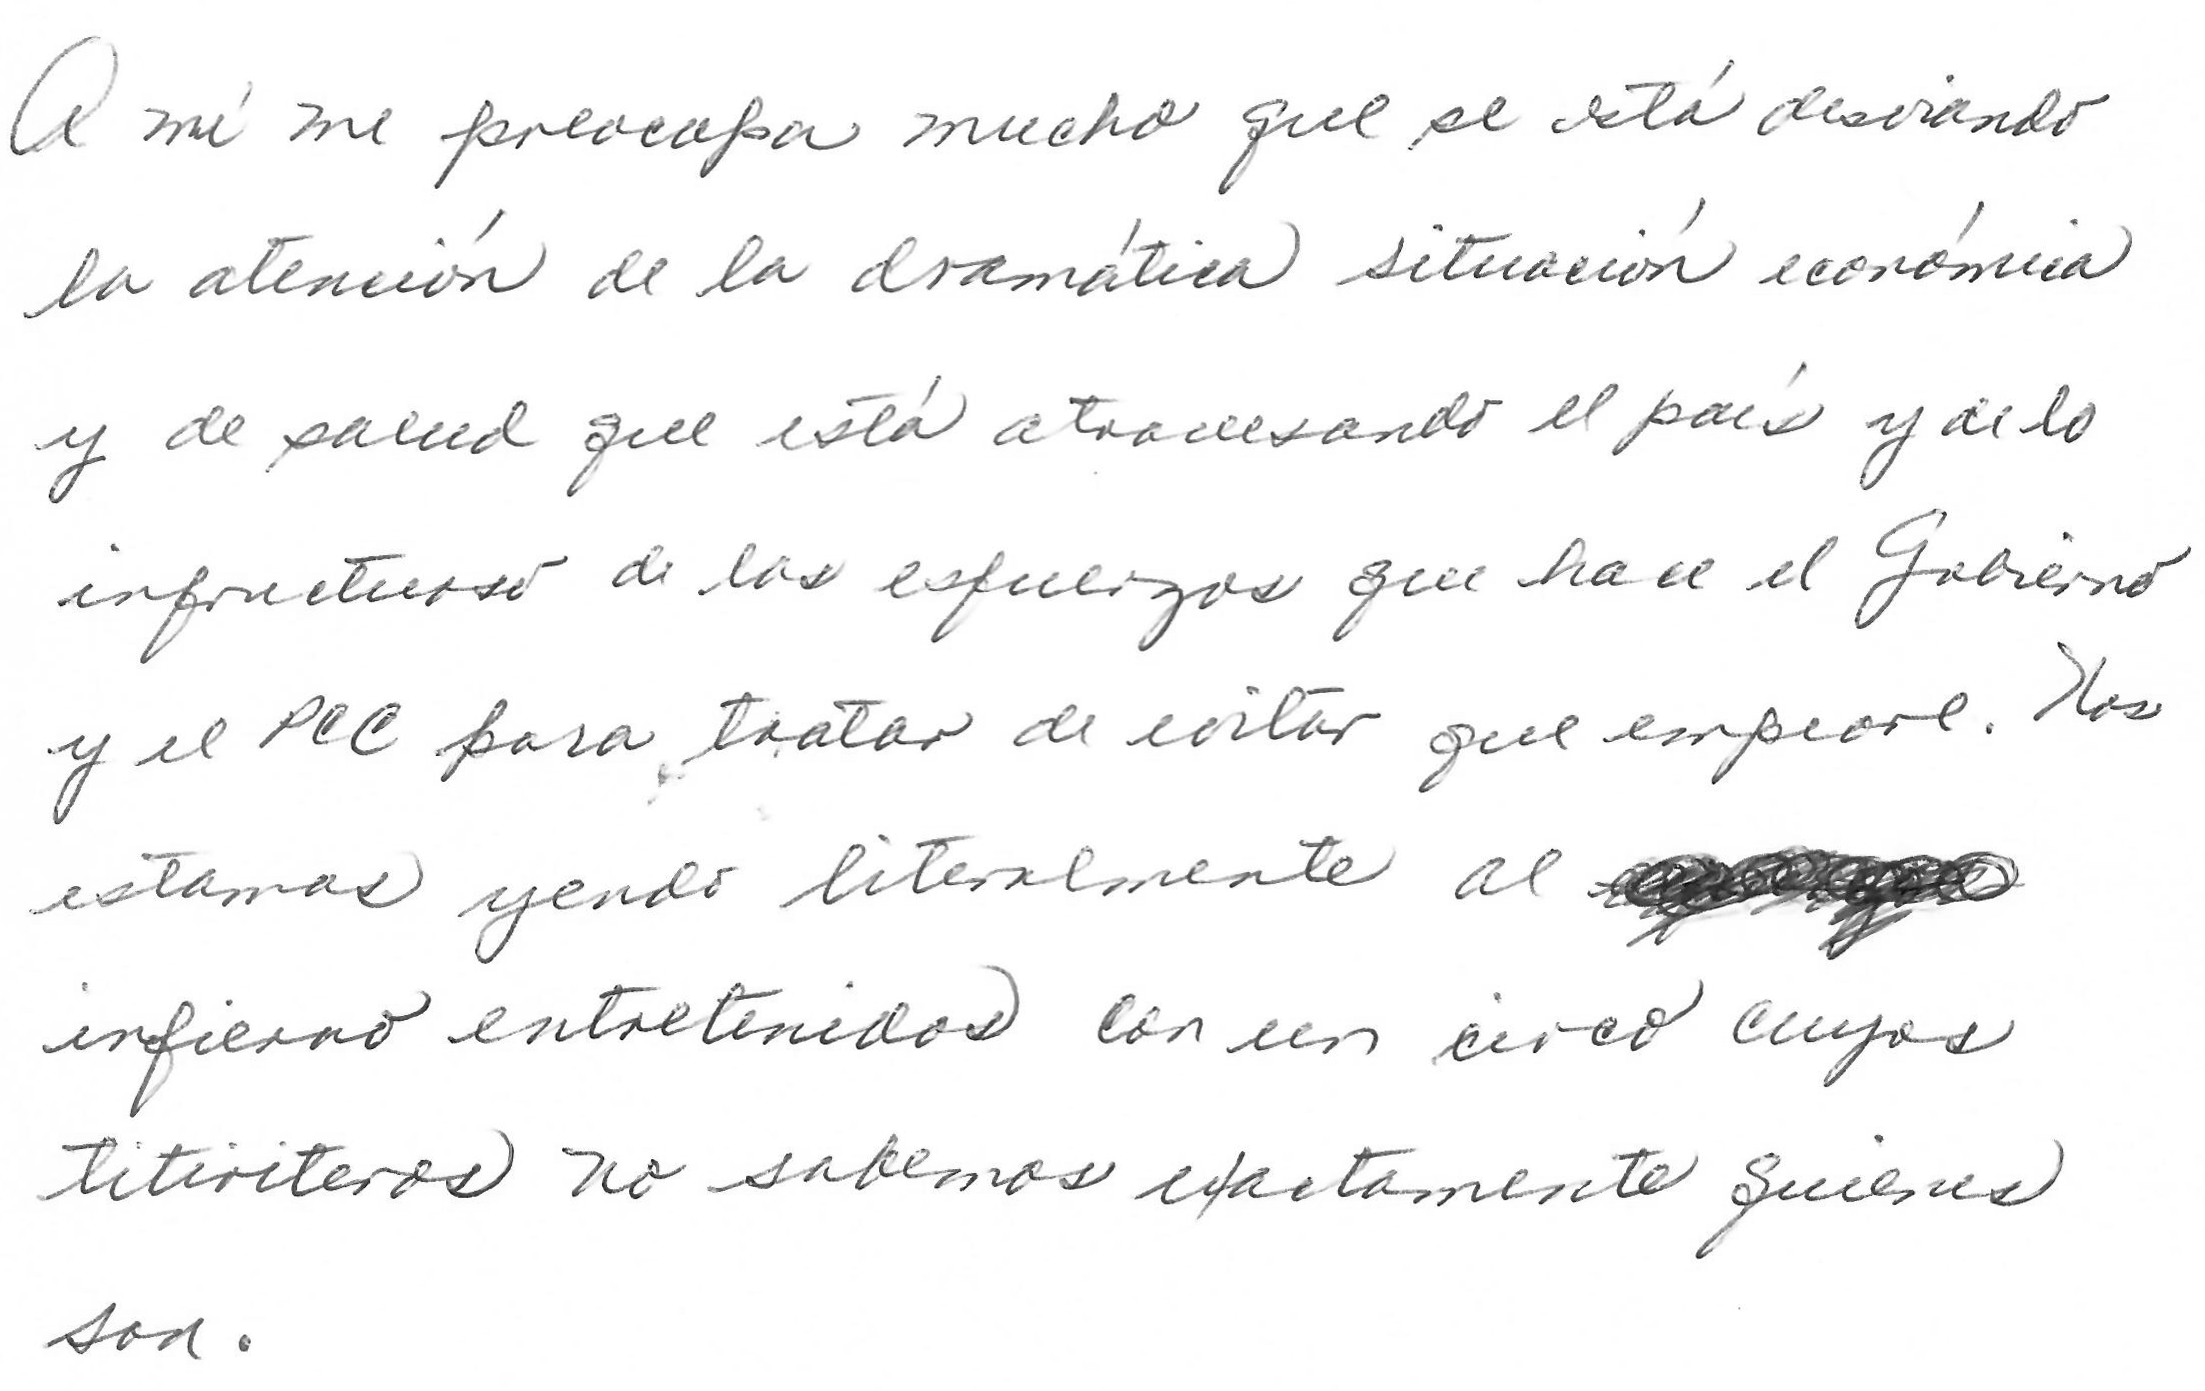 A mí me preocupa mucho que se está desviando
la atención de la dramática situación económica
y de salud que está atravesando el país y de lo
infructuoso de los esfuerzos que hace el Gobierno
y el PCC para tratar de evitar que empeore. Nos
estamos yendo literalmente al
infierno entretenidos con un circo cuyos
titiriteros no sabemos exactamente quienes
son.